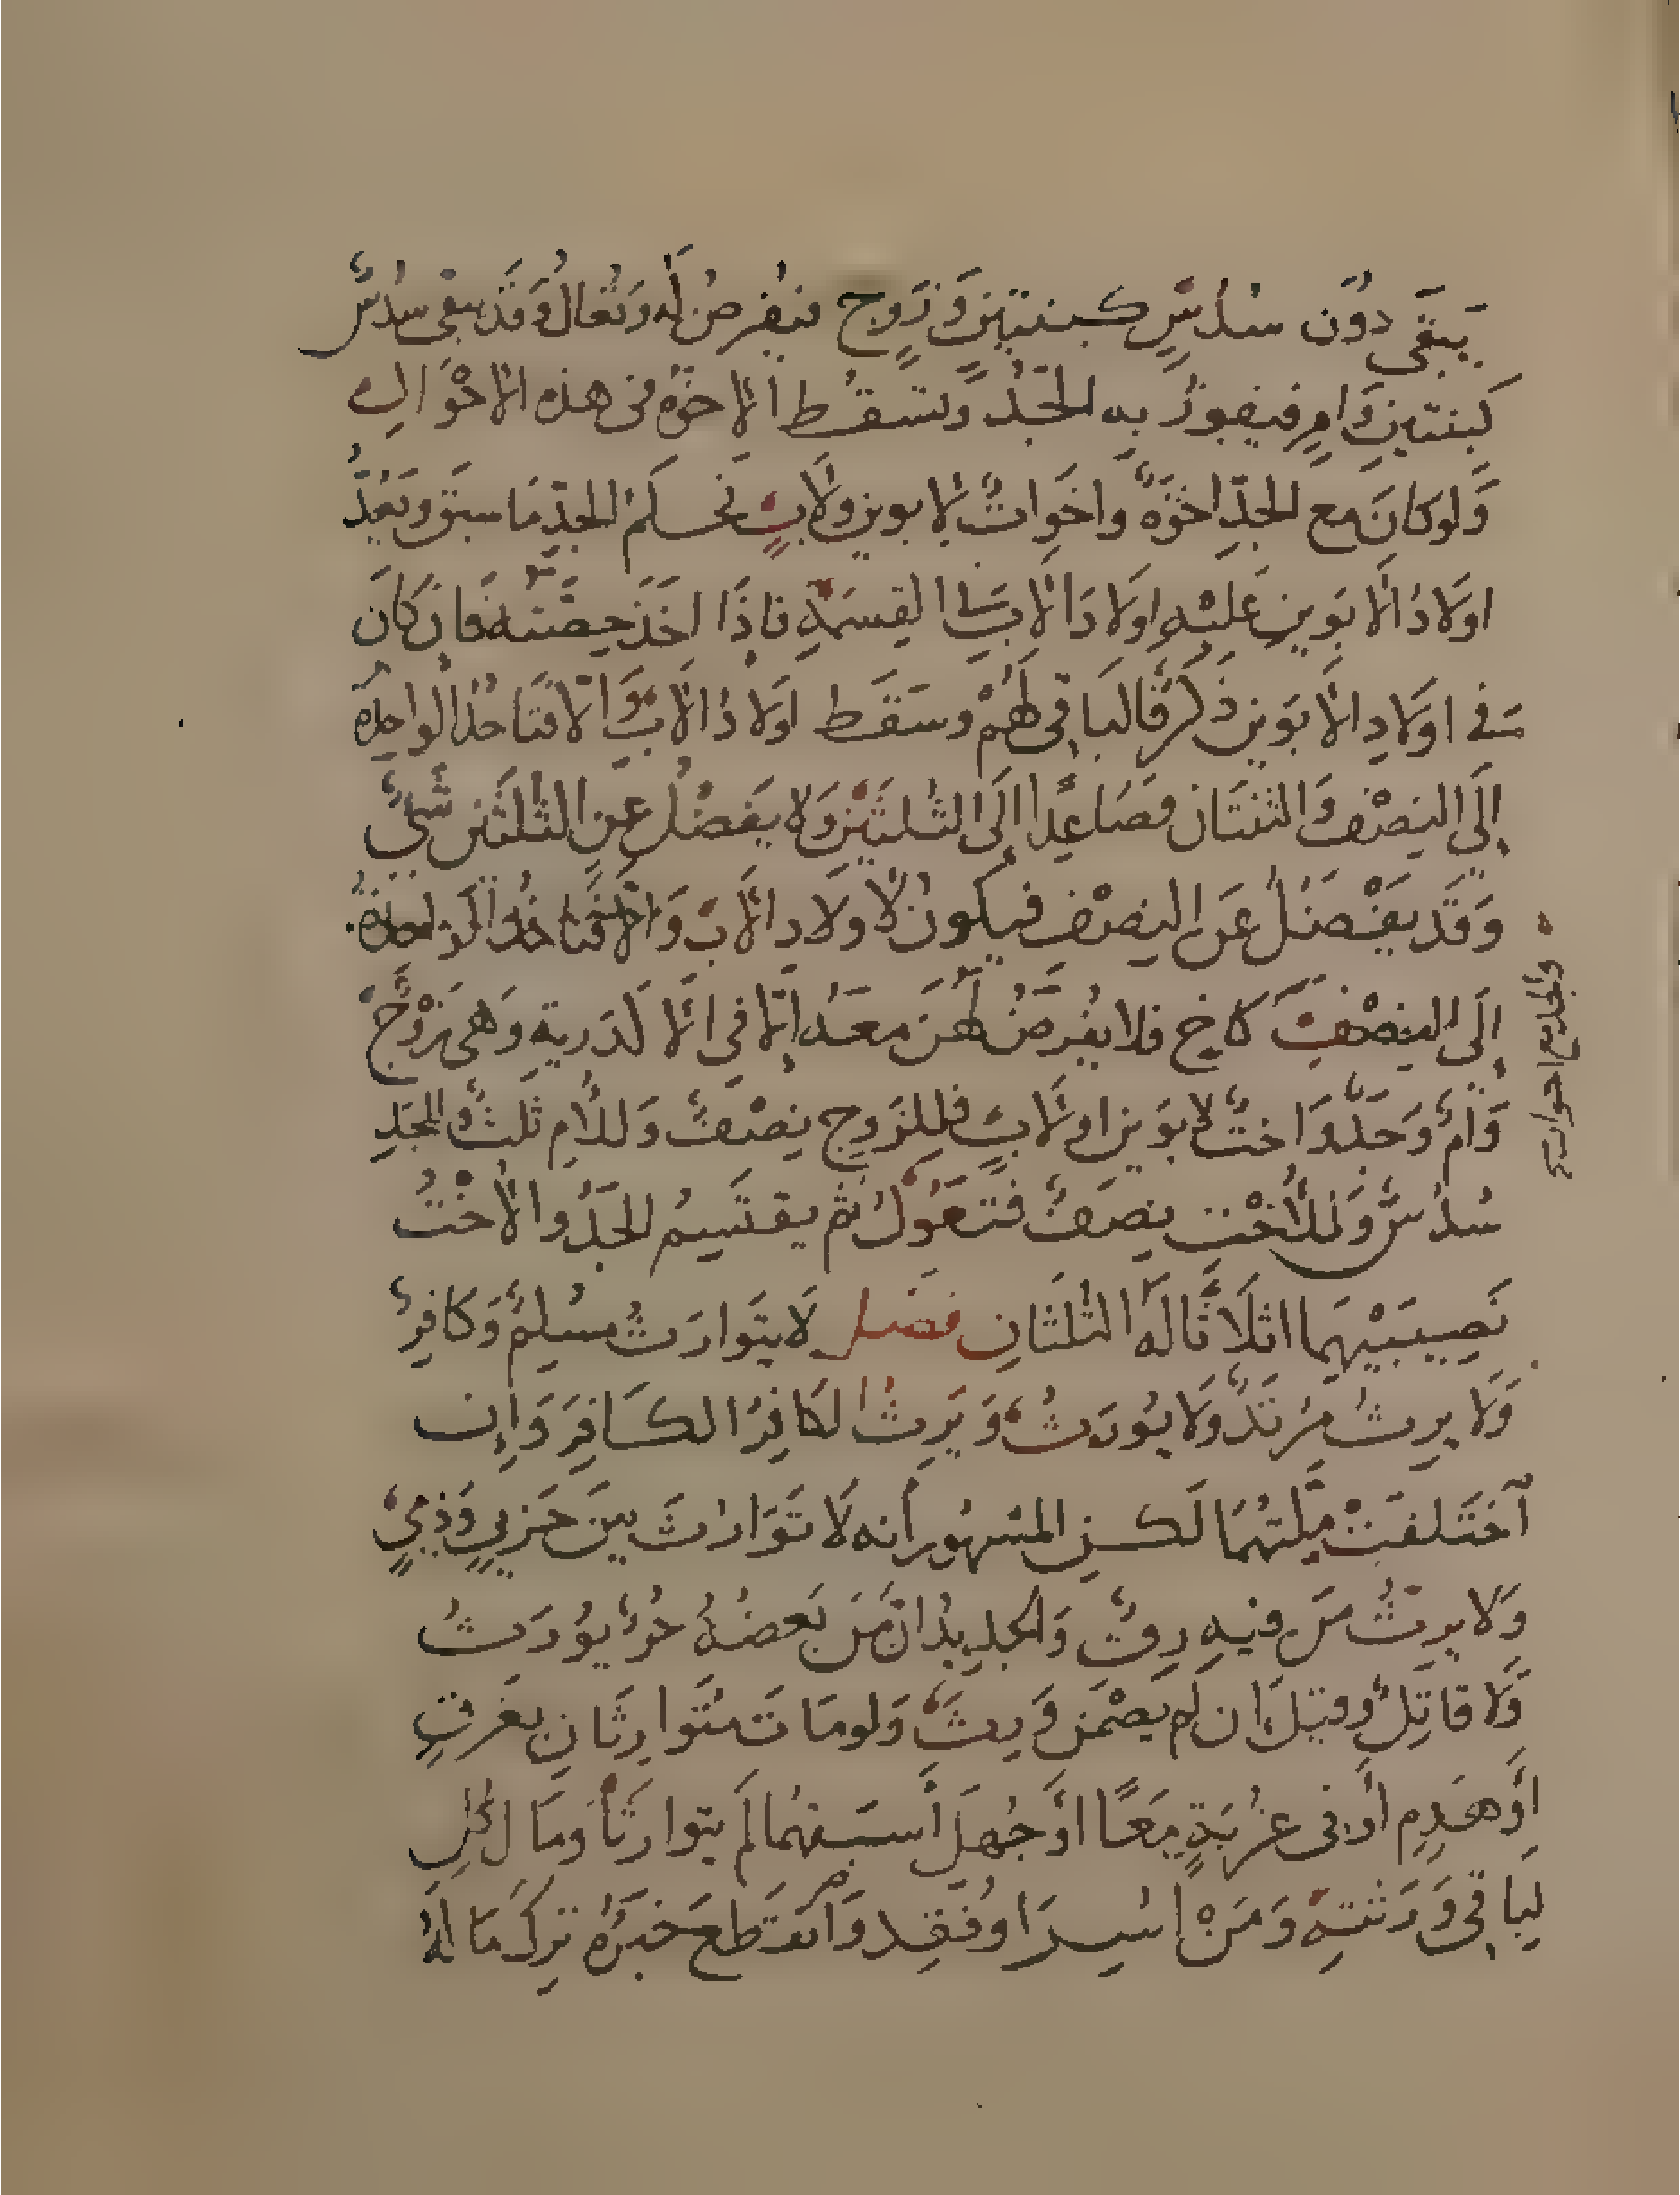 يَبقَى دُون سُدُسٍ كبنتينِ وَزَوجٍ فيُفرضُ لَه وَتُعَالُ وَقَد يبقى سُدُسٌ
كَبِنتَينِ وَامٍ فيَفوزُ بِه الجَدُّ وَتسقُط الإخوَةُ فى هذه الاحْوَالِ
وَلَو كانَ مع الجَدِّ اخوَةٌ وَاخَواتٌ لابوين ولابٍ فحكمُ الجدِّ مَا سبَق وَيَعُدُّ
اولَادُ الابوَينِ عَليْه اولادَ الابِ فى القِسمَةِ فاذَا اخَذَ حِصَّتَه فَان كَانَ
فى اوَلادِ الابوَين ذَكَرٌ فَالبَاقِى لَهُمْ وَسَقَط اولادُ الابِ وَالا فتَاخُذُ الواحِدَةُ
إلَى النِصْفِ وَالثنتَان فصَاعِدًا إلَى الثلثَيْنِ وَلا يَفضُلُ عَن الثلثَين شىٌ
وَقَد يَفْضُلُ عَن النِصْفِ فيَكونُ لاولادِ الأبِ
إلَى النِصْفِ كاخٍ فلا يُفرَضُ لَهُنَ معَه إلا فى الاكدَريةِ وَهى زَوْجٌ
وَامٌ وَجَدٌّ وَاختٌ لابوَين اولابٍ فللزَوجِ نِصْفٌ وَللأمِ ثلثٌ وللجَدِ
سُدُسٌ وَللأُخْتِ نِصفٌ فتَعُولُ ثم يقتَسِمُ الجَدُّ والأخْتُ
نَصِيبَيْهمَا اثلَاثًا لَه الثلثَانِ فصَل لَا يتَوارَثُ مسُلِمٌ وَكافِرٌ
وَلا يرِثُ مُرتَدٌّ وَلا يُورَثُ وَيَرِثُ الكافِرُ الكَافِرَ وَإن
اختَلفَتْ مِلّتهُمَا لَكن المشهُور أنه لَا تَوَارُثَ بينَ حَربِىٍ وَذِمِىٍ
وَلا يرِثُ مَن فيهِ رِقٌ وَالجدِيدُ انَّ مَن بَعضُهُ حُرٌ يُورَثُ
وَلَا قاتِلٌ وقيلَ ان لم يُضْمَن وَرِثَ وَلو مَاتَ مُتَوارِثَانِ بغَرقٍ
أوَ هَدِمٍ أو فى غُربَةٍ مَعًا اوَ جُهِلَ أسبَقهُما لَم يتوارَثَا وَمَال كلٍ
لبَاقِى وَرَثتِهِ وَمَنْ اسُِرَ اوفُقِد وَانقَطعَ خَبَرُه تركَ مَالهُ
والجد مع احوالهم